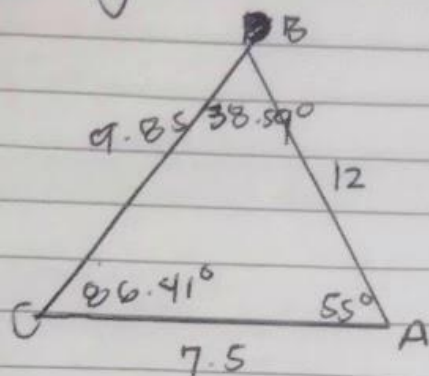 B
9.85 38.59°
12
86.41° 55°
C A
7.5